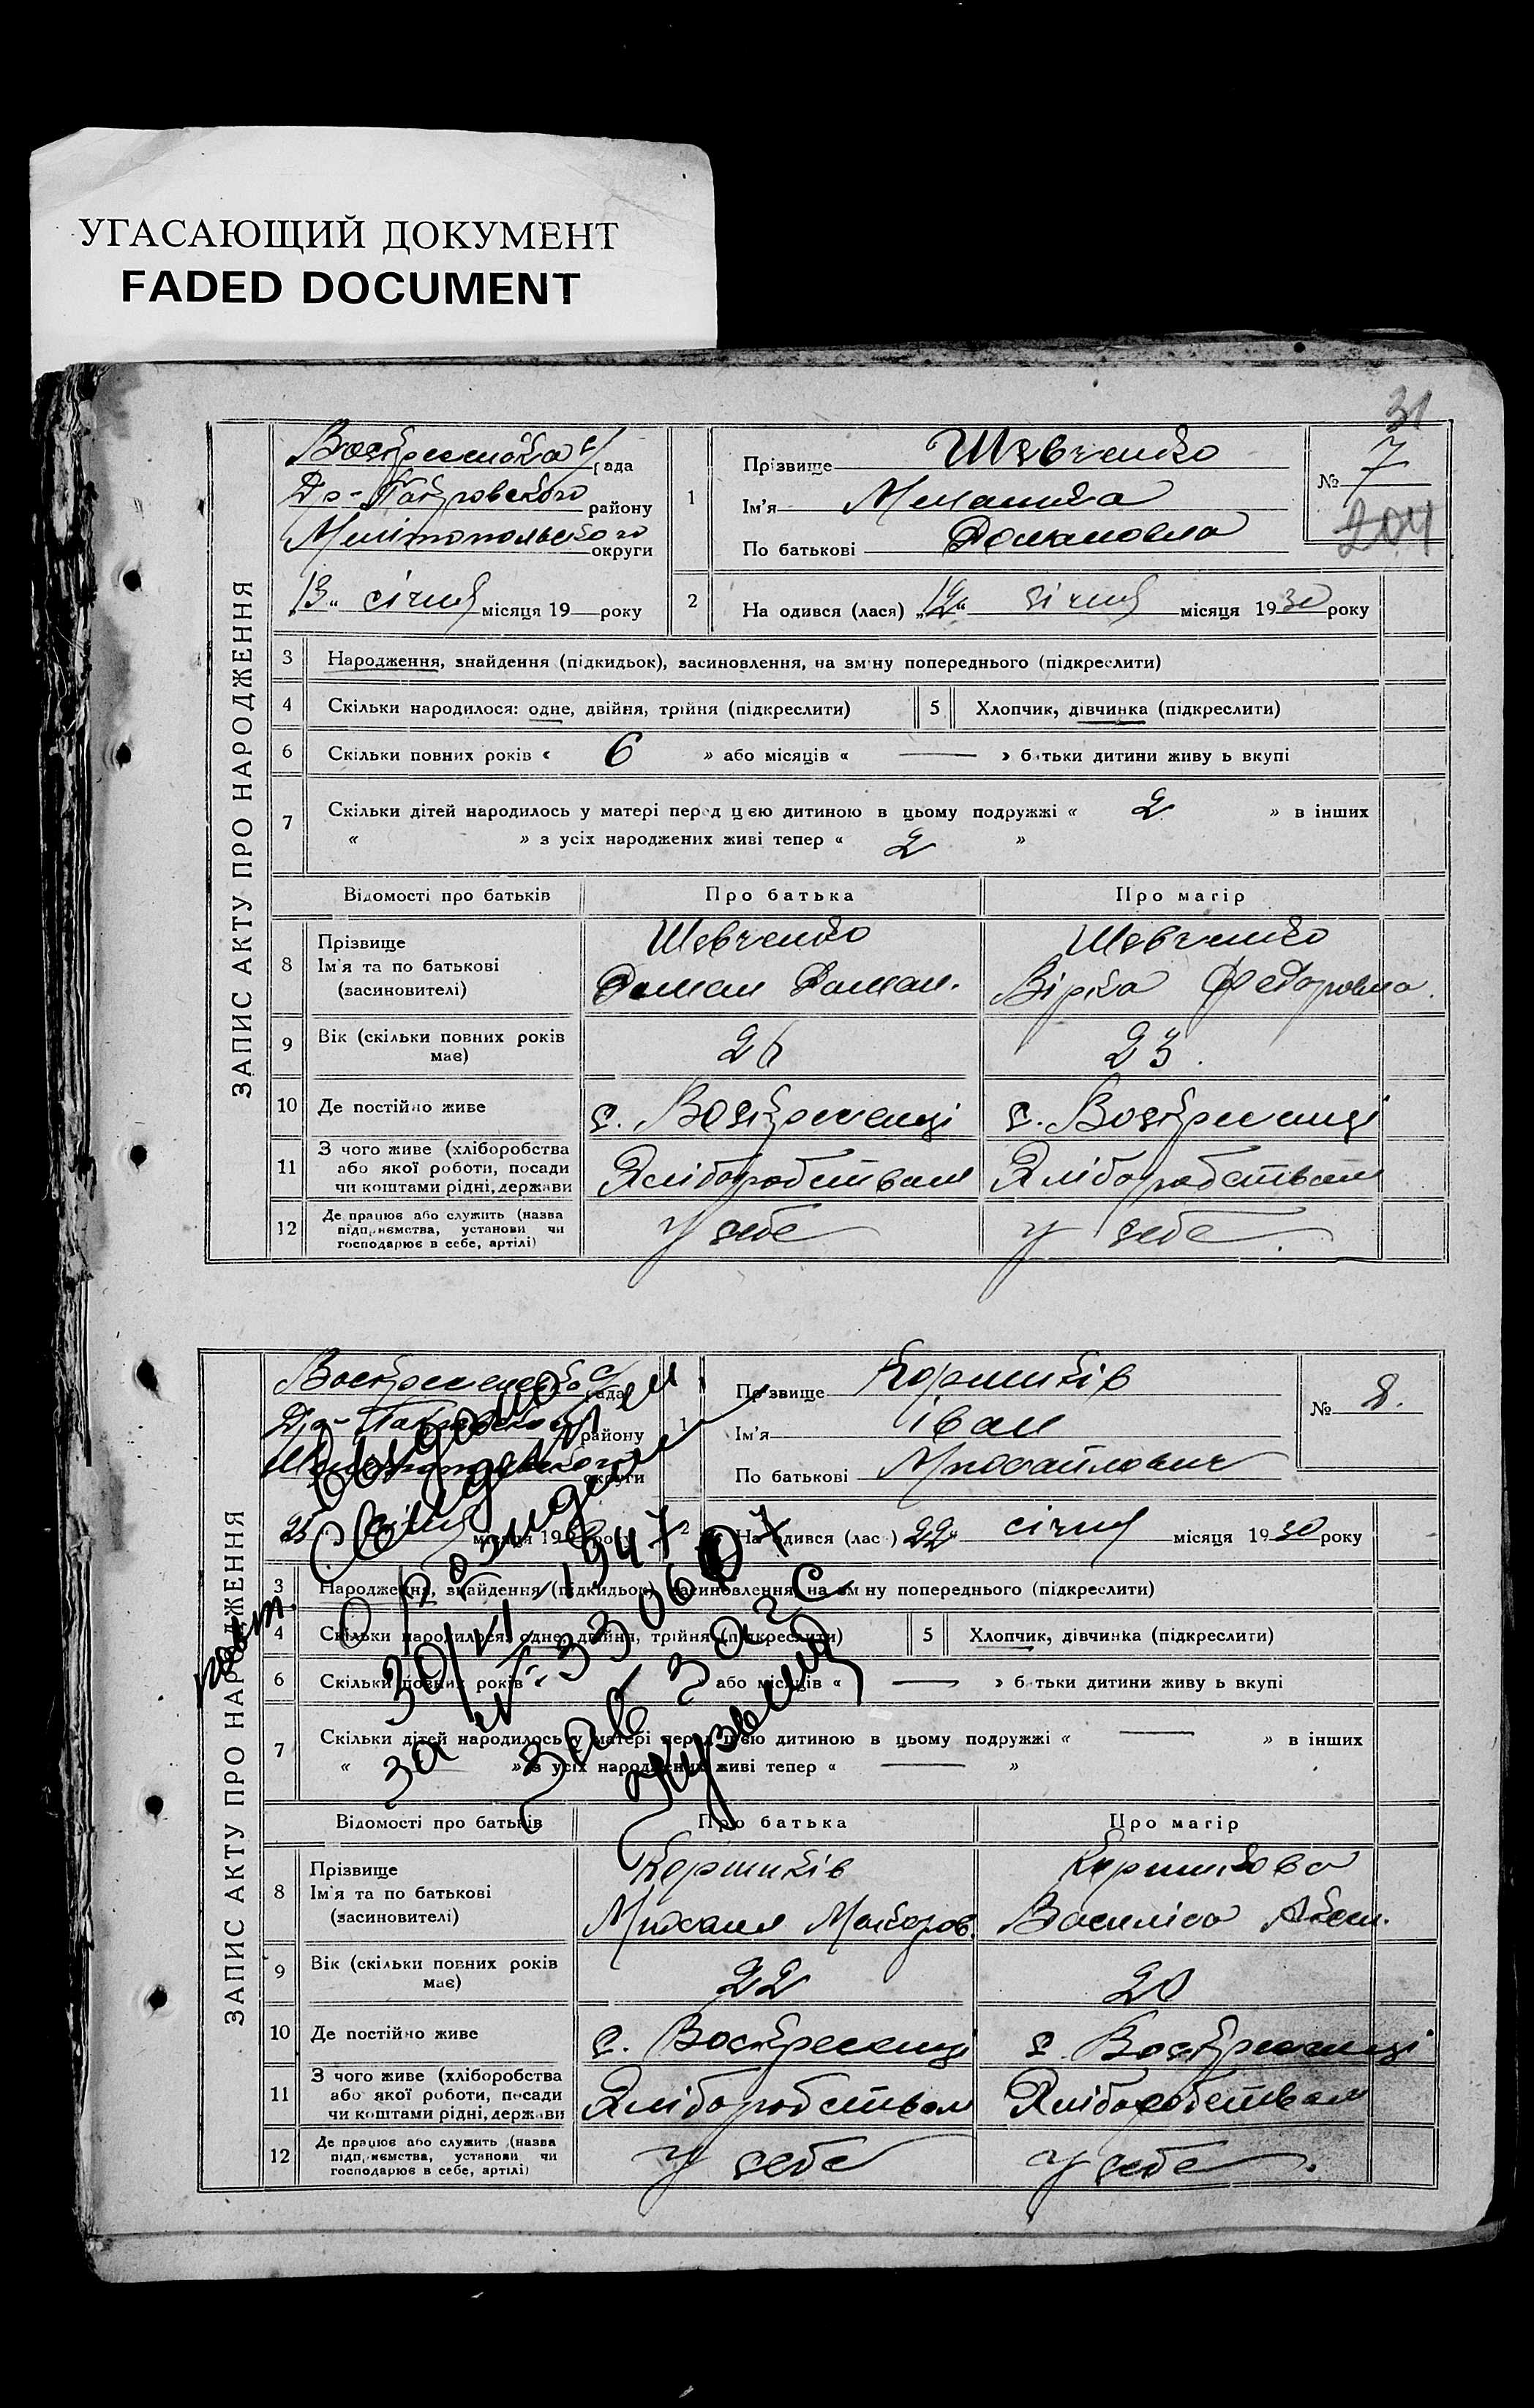 УГАСАЮЩИЙ ДОКУМЕНТ
FADED DOCUMENT
31
ЗАПИС АКТУ ПРО НАРОДЖЕННЯ
Воскресенська с/рада
району
Мелітопольського округи
13" січня місяця 19 року
1
Прізвище Шевченко
Ім'я Меланія
По батькові Романовна
№ 7
204
2
На одився (лася) „12" січня місяця 1930 року
3 Народження, знайдення (підкидьок), засиновлення, на зміну попереднього (підкреслити)
4 Скільки народилося: одне, двійня, трійня (підкреслити)
5 Хлопчик, дівчинка (підкреслити)
6 Скільки повних років « 6 » або місяців « — » батьки дитини живуть вкупі
7 Скільки дітей народилось у матері перед цією дитиною в цьому подружжі « 2 » в інших
« » з усіх народжених живі тепер « 2 »
Відомості про батьків Про батька Про матір
8 Прізвище Шевченко Шевченко
Ім'я та по батькові Роман Роман. Вірка Федоровна
(засновителі)
9 Вік (скільки повних років має) 26 23.
10 Де постійно живе с. Воскресенці с. Воскресенці
11 З чого живе (хліборобства або якої роботи, посади чи коштами рідні, держави Хліборобством Хліборобством
12 Де працює або служить (назва підприємства, установи чи господарює в себе, артілі) у себе у себе.
ЗАПИС АКТУ ПРО НАРОДЖЕННЯ
Воскресенська с/рада
району
Мелітопольського округи
25 січня місяця 19 року
1
Прізвище Коршиків
Ім'я Іван
По батькові Михайлович
№ 8.
2
На одився (лас ) 22" січня місяця 1930 року
3 Народження, знайдення (підкидьок), засиновлення, на зміну попереднього (підкреслити)
4 Скільки народилося: одне, двійня, трійня (підкреслити)
5 Хлопчик, дівчинка (підкреслити)
6 Скільки повних років « » або місяців « — » батьки дитини живуть вкупі
7 Скільки дітей народилось у матері перед цією дитиною в цьому подружжі « — » в інших
« » з усіх народжених живі тепер « — »
повт. Видано
свид.
о рождении
30/VI 1947
за № 330607
зав загс
Відомості про батьків Про батька Про матір
8 Прізвище Коршиків Коршикова
Ім'я та по батькові Михаил Макаров. Василіса
(засновителі)
9 Вік (скільки повних років має) 22 20
10 Де постійно живе с. Воскресенці с. Воскресенці
11 З чого живе (хліборобства або якої роботи, посади чи коштами рідні, держави Хліборобством Хліборобством
12 Де працює або служить (назва підприємства, установи чи господарює в себе, артілі) у себе у себе.